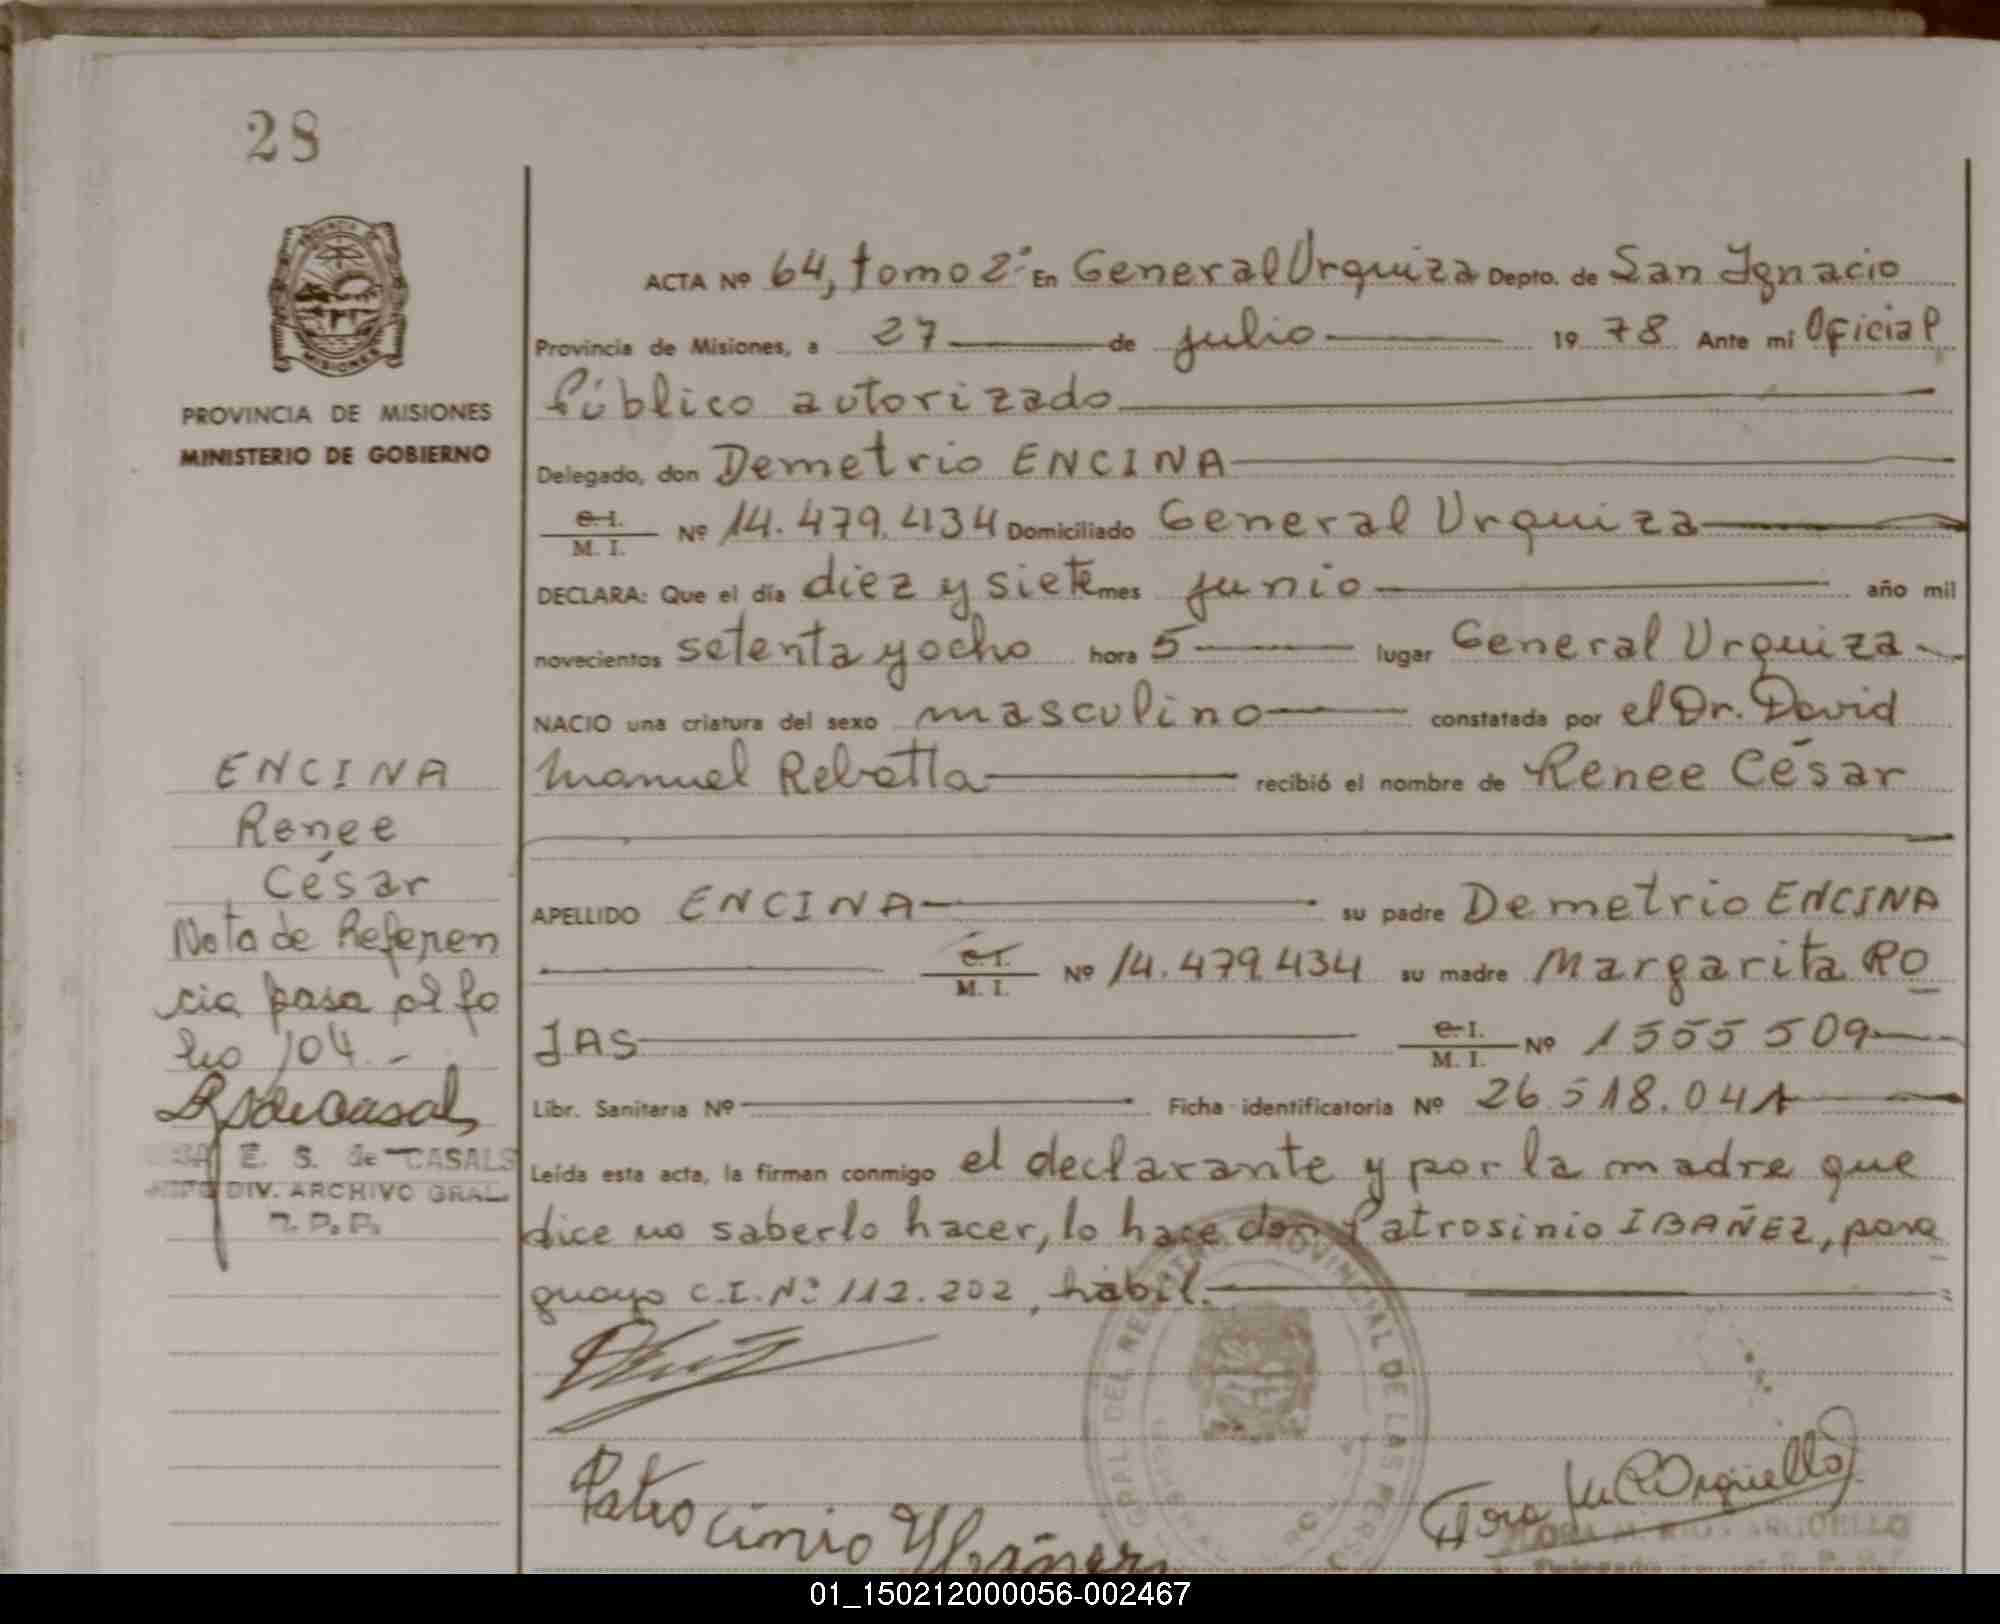 28
ACTA Nº 64, tomo 2º En General Urquiza Depto. de San Ignacio
Provincia de Misiones, a 27 de julio 1978 Ante mi Oficial
Público autorizado
PROVINCIA DE MISIONES
MINISTERIO DE GOBIERNO
Delegado, don Demetrio ENCINA
C. I. M. I. Nº 14.479.434 Domiciliado General Urquiza
DECLARA: Que el día diez y siete mes junio año mil
novecientos setenta y ocho hora 5 lugar General Urquiza
NACIO una criatura del sexo masculino constatada por el Dr. David
Manuel Rebotta recibió el nombre de Renee César
ENCINA
Renee
César
APELLIDO ENCINA su padre Demetrio ENCINA
C. I. M. I. Nº 14.479.434 su madre Margarita RO
JAS C. I. M. I. Nº 1555509
Libr. Sanitaria Nº Ficha identificatoria Nº 26.518.041
Nota de Referen
cia pasa al fo
lio 104.-
E. S. de CASALS
DIV. ARCHIVO GRAL
R. P. P.
Leída esta acta, la firman conmigo el declarante y por la madre que
dice no saberlo hacer, lo hace don Patrosinio IBAÑEZ, para
guayo C.I.Nº 112.202, hábil.
MISIONES
GRAL DEL REGISTRO PROVINCIAL DE LAS PERSO
Patrocinio Ybañez
Flora M R Arguello
FLORA M. RIOS ARGUELLO
01_150212000056-002467